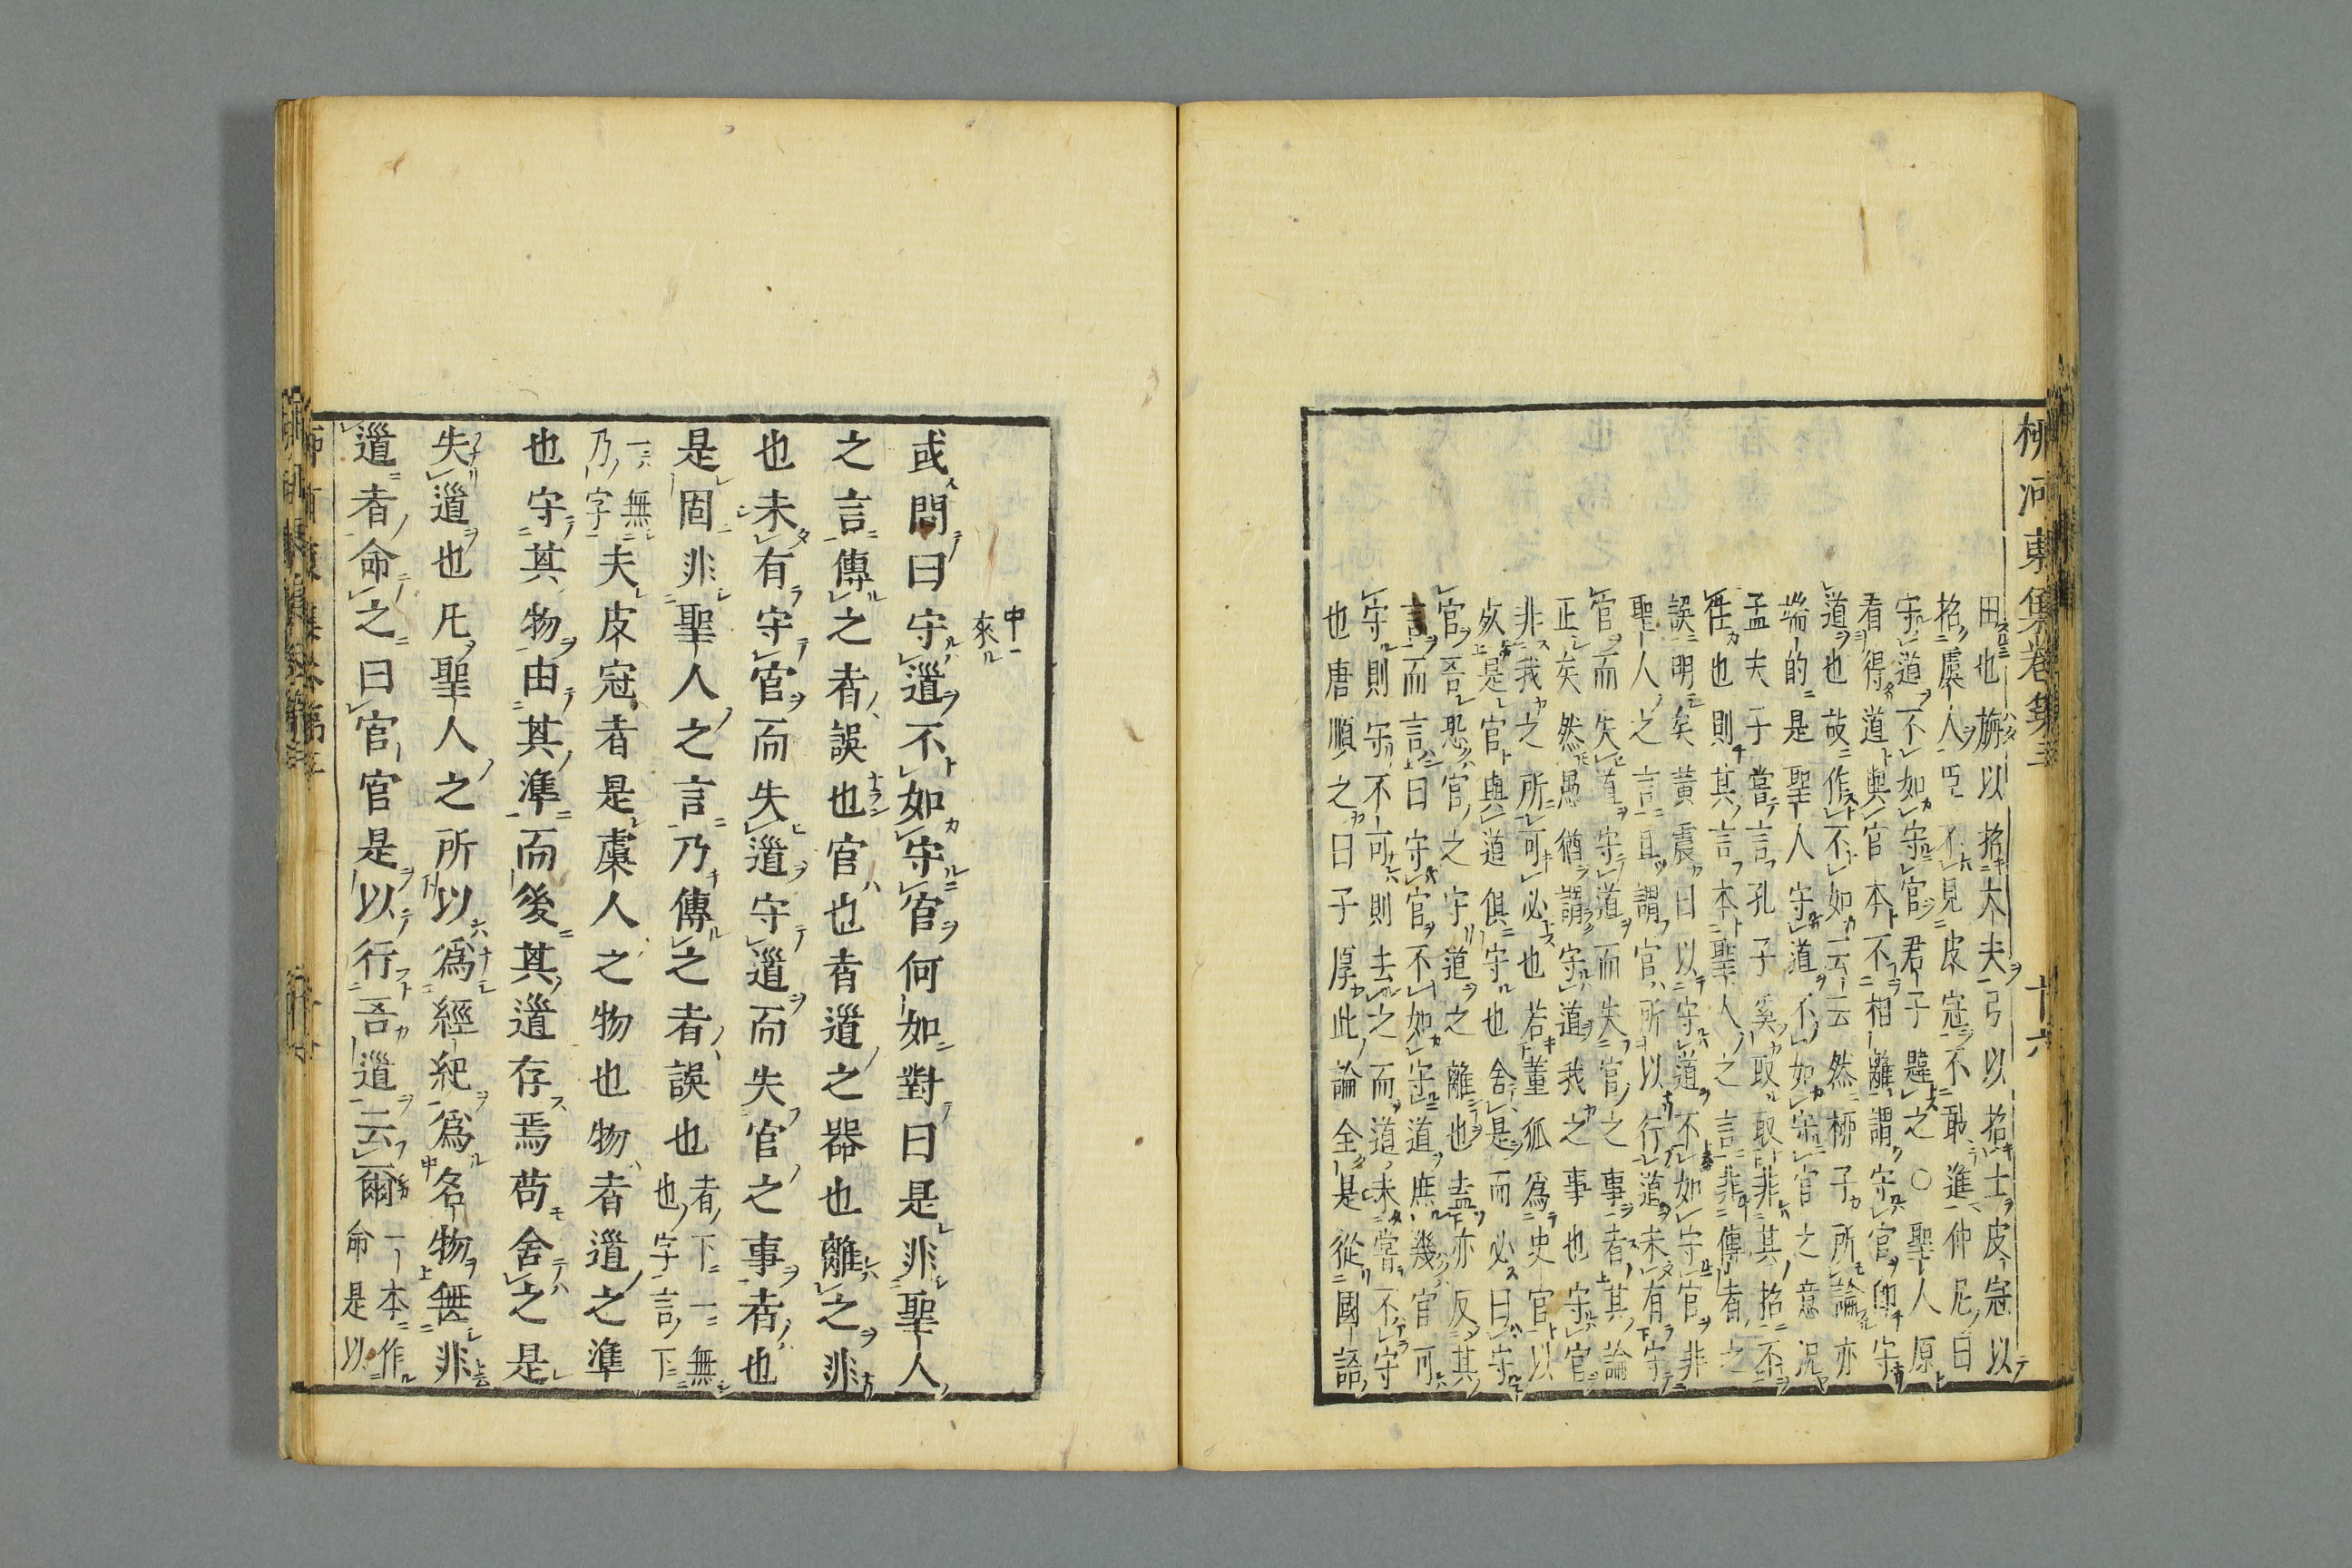 柳河東集卷第三
十六
田也旃以招大夫弓以招士皮冠以
招虞人臣不見皮冠不敢進仲尼曰
守道不如守官君子韙之○聖人原
看得道與官本不相離謂守官卽守
道也故作不如云云然柳子所論亦
端的是聖人守道不如守官之意况
孟夫子嘗言孔子奚取取非其招不
徃也則其言本聖人之言非傳者之
誤明矣黃震曰以守道不如守官非
聖人之言且謂官所以行道未有守
官而失道守道而失官之事者其論
正矣然愚猶謂守道我之事也守官
非我之所可必也若董狐爲史官以
死是官與道俱守也舍是而必曰守
官吾恐官之守道之離也盍亦反其
言而言曰守官不如守道庶幾官可
守則守不可則去之而道未嘗不守
也唐順之曰子厚此論全是從國語
中來
或問曰守道不如守官何如對曰是非聖人
之言傳之者誤也官也者道之器也離之非
也未有守官而失道守道而失官之事者也
是固非聖人之言乃傳之者誤也者下一無也字言下
一無乃字夫皮冠者是虞人之物也物者道之準
也守其物由其準而後其道存焉苟舍之是
失道也凡聖人之所以爲經紀爲名物無非
道者命之曰官官是以行吾道云爾一本作命是以